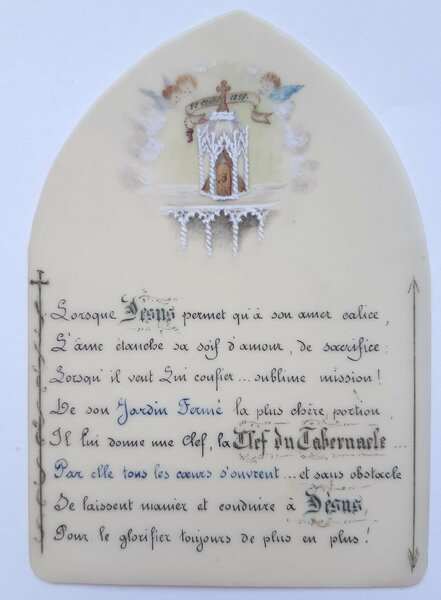 Lorsque Jésus permet qu'à son amer calice,
L'âme étanche sa soif d'amour, de sacrifice;
Lorsqu'il veut Lui confier... sublime mission!
De son Jardin Fermé la plus chère portion,
Il lui donne une Clef, la Clef du Tabernacle...
Par elle tous les cœurs s'ouvrent... et sans obstacle
Se laissent manier et conduire à Jésus,
Pour le glorifier toujours de plus en plus!